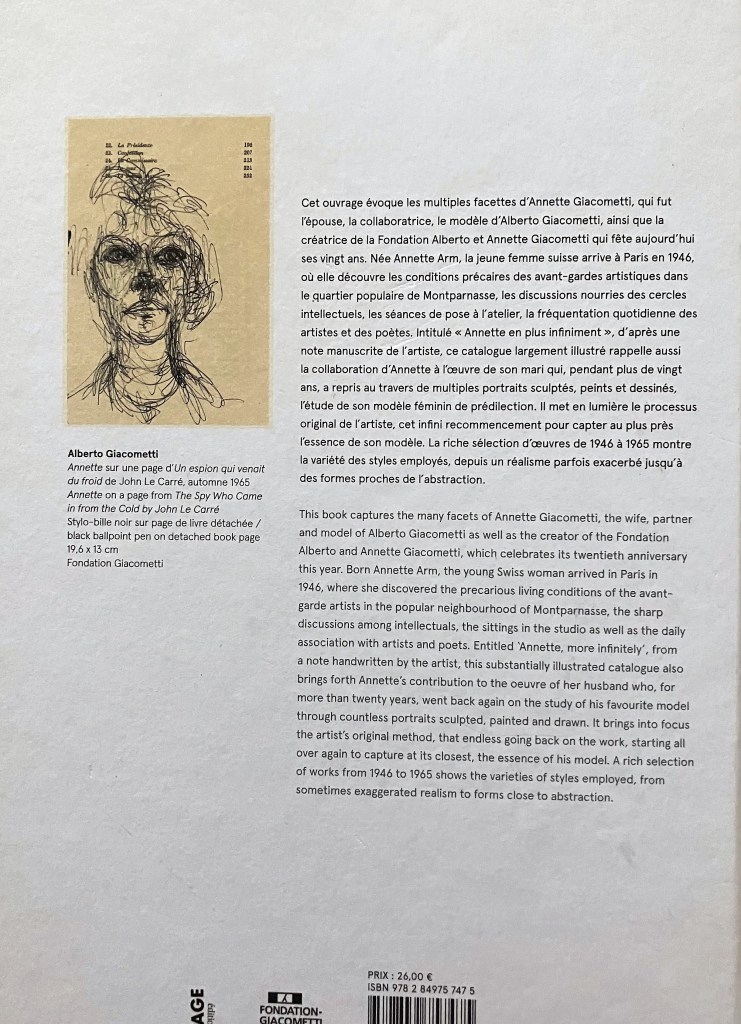 22. La Présidente 196
23. Confession 207
213
221
Alberto Giacometti
Annette sur une page d'Un espion qui venait
du froid de John Le Carré, automne 1965
Annette on a page from The Spy Who Came
in from the Cold by John Le Carré
Stylo-bille noir sur page de livre détachée /
black ballpoint pen on detached book page
19,6 x 13 cm
Fondation Giacometti
Cet ouvrage évoque les multiples facettes d'Annette Giacometti, qui fut
l'épouse, la collaboratrice, le modèle d'Alberto Giacometti, ainsi que la
créatrice de la Fondation Alberto et Annette Giacometti qui fête aujourd'hui
ses vingt ans. Née Annette Arm, la jeune femme suisse arrive à Paris en 1946,
où elle découvre les conditions précaires des avant-gardes artistiques dans
le quartier populaire de Montparnasse, les discussions nourries des cercles
intellectuels, les séances de pose à l'atelier, la fréquentation quotidienne des
artistes et des poètes. Intitulé « Annette en plus infiniment », d'après une
note manuscrite de l'artiste, ce catalogue largement illustré rappelle aussi
la collaboration d'Annette à l'œuvre de son mari qui, pendant plus de vingt
ans, a repris au travers de multiples portraits sculptés, peints et dessinés,
l'étude de son modèle féminin de prédilection. Il met en lumière le processus
original de l'artiste, cet infini recommencement pour capter au plus près
l'essence de son modèle. La riche sélection d'œuvres de 1946 à 1965 montre
la variété des styles employés, depuis un réalisme parfois exacerbé jusqu'à
des formes proches de l'abstraction.
This book captures the many facets of Annette Giacometti, the wife, partner
and model of Alberto Giacometti as well as the creator of the Fondation
Alberto and Annette Giacometti, which celebrates its twentieth anniversary
this year. Born Annette Arm, the young Swiss woman arrived in Paris in
1946, where she discovered the precarious living conditions of the avant-
garde artists in the popular neighbourhood of Montparnasse, the sharp
discussions among intellectuals, the sittings in the studio as well as the daily
association with artists and poets. Entitled 'Annette, more infinitely', from
a note handwritten by the artist, this substantially illustrated catalogue also
brings forth Annette's contribution to the oeuvre of her husband who, for
more than twenty years, went back again on the study of his favourite model
through countless portraits sculpted, painted and drawn. It brings into focus
the artist's original method, that endless going back on the work, starting all
over again to capture at its closest, the essence of his model. A rich selection
of works from 1946 to 1965 shows the varieties of styles employed, from
sometimes exaggerated realism to forms close to abstraction.
AGE
FONDATION-
GIACOMETTI
PRIX : 26,00 €
ISBN 978 2 84975 747 5